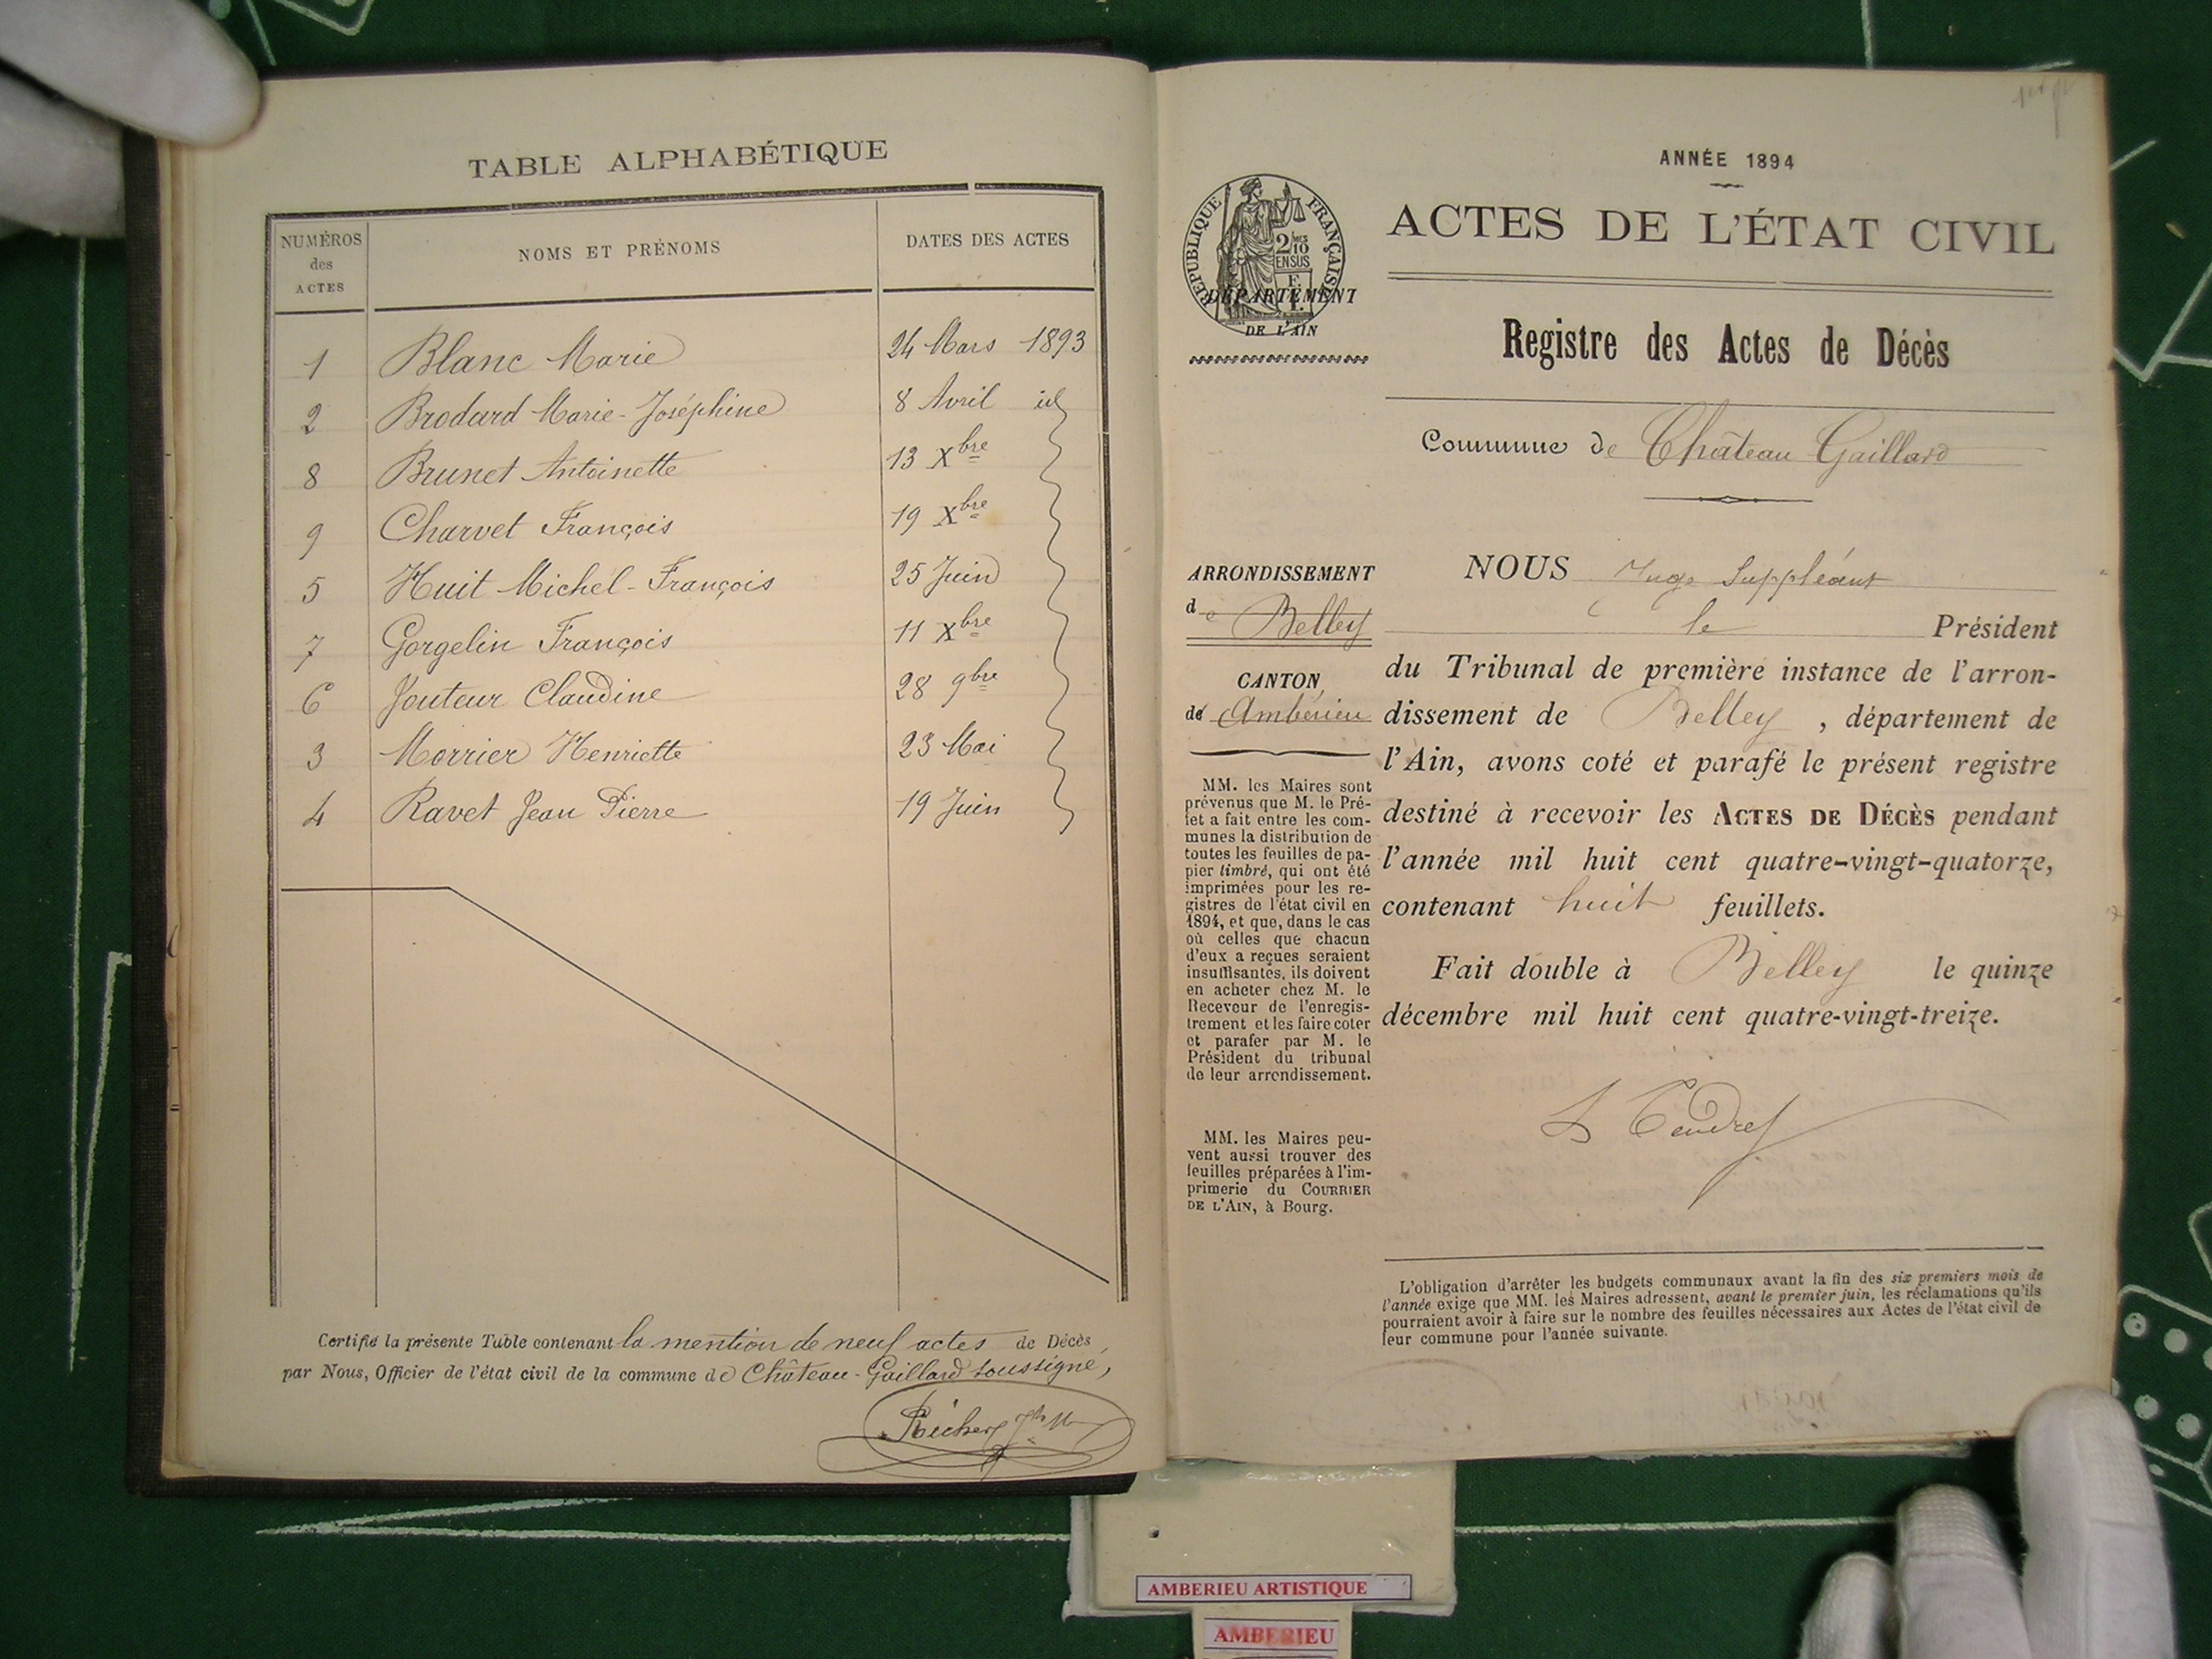 TABLE ALPHABÉTIQUE
NUMÉROS des ACTES NOMS ET PRÉNOMS DATES DES ACTES
1 Blanc Marie 24 Mars 1893
2 Brodard Marie-Joséphine 8 Avril id
8 Brunet Antoinette 13 Xbre
9 Charvet François 19 Xbre
5 Huit Michel-François 25 Juin
7 Gorgelin François 11 Xbre
6 Jouteur Claudine 28 9bre
3 Morrier Henriette 23 Mai
4 Ravet Jean Pierre 19 Juin
Certifié la présente Table contenant la mention de neuf actes de Décès
par Nous, Officier de l'état civil de la commune de Château-Gaillard soussigné,
ANNÉE 1894
ACTES DE L'ÉTAT CIVIL
RÉPUBLIQUE FRANÇAISE
2 MES
10
EN SUS
DÉPARTEMENT
DE L'AIN
Registre des Actes de Décès
Commune de Château Gaillard
ARRONDISSEMENT
de Belley
CANTON
de Ambérieu
MM. les Maires sont
prévenus que M. le Pré-
fet a fait entre les com-
munes la distribution de
toutes les feuilles de pa-
pier timbré, qui ont été
imprimées pour les re-
gistres de l'état civil en
1894, et que, dans le cas
où celles que chacun
d'eux a reçues seraient
insuffisantes, ils doivent
en acheter chez M. le
Receveur de l'enregis-
trement et les faire coter
et parafer par M. le
Président du tribunal
de leur arrondissement.
MM. les Maires peu-
vent aussi trouver des
feuilles préparées à l'im-
primerie du COURRIER
DE L'AIN, à Bourg.
NOUS Juge Suppléant
le Président
du Tribunal de première instance de l'arron-
dissement de Belley, département de
l'Ain, avons coté et parafé le présent registre
destiné à recevoir les ACTES DE DÉCÈS pendant
l'année mil huit cent quatre-vingt-quatorze,
contenant huit feuillets.
Fait double à Belley le quinze
décembre mil huit cent quatre-vingt-treize.
L'obligation d'arrêter les budgets communaux avant la fin des six premiers mois de
l'année exige que MM. les Maires adressent, avant le premier juin, les réclamations qu'ils
pourraient avoir à faire sur le nombre des feuilles nécessaires aux Actes de l'état civil de
leur commune pour l'année suivante.
AMBERIEU ARTISTIQUE
AMBERIEU